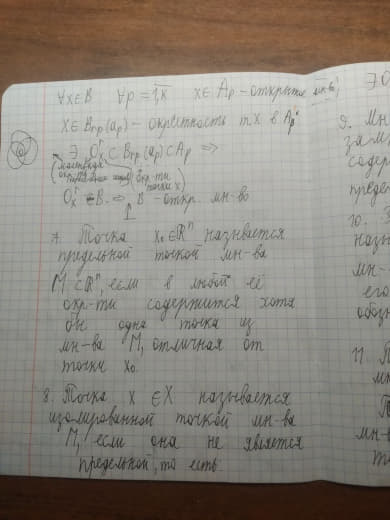 ∀x∈B ∀p = 1,k x∈Ap – открытое мн-во,
x∈Brp(ap) – окрестность т.x в Ap
∃ Oxʳ ⊂ Brp(ap) ⊂ Ap ⇒
Oxʳ B ⇒ B – откр. мн-во
7. Точка x₀∈ℝⁿ называется
предельной точкой мн-ва
M⊂ℝⁿ, если в любой её
окр-ти содержится хотя
бы одна точка из
мн-ва M, отличная от
точки x₀.
8. Точка x ∈X называется
изолированной точкой мн-ва
M, если она не является
предельной, то есть
9. Мн
содер
преде
10.
назы
мн-
его
обоз
11. П
мн-в